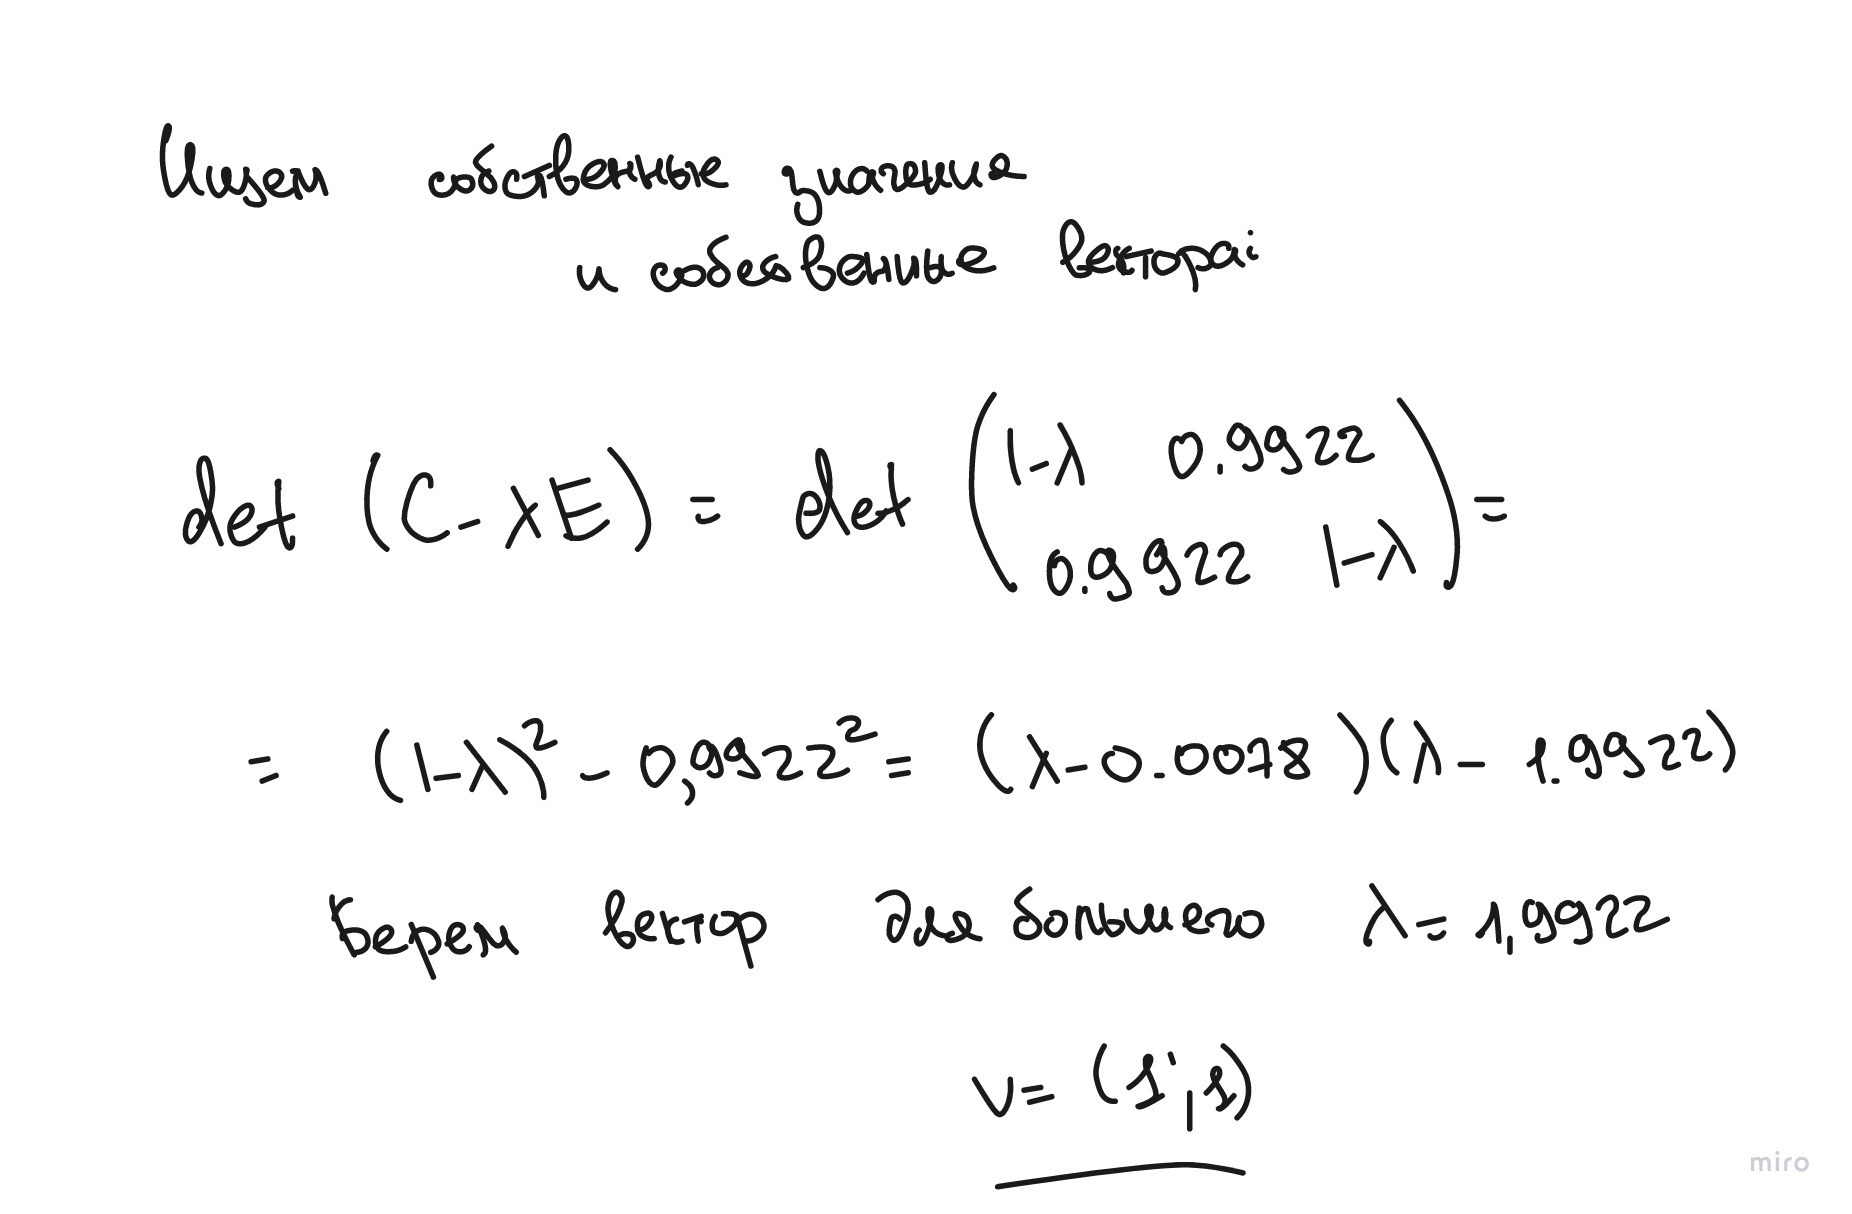 Ищем собственные значения
и собственные вектора:
det (C - λE) = det (1-λ 0.9922
0.9922 1-λ) =
= (1-λ)² - 0,9922² = (λ - 0.0078)(λ - 1.9922)
Берем вектор для большего λ = 1,9922
v = (1, 1)
miro